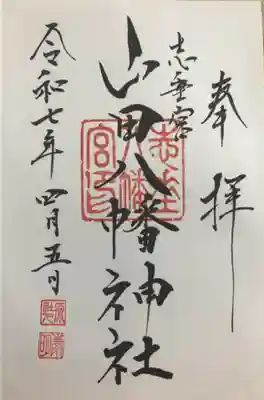 奉拝
志垂宮
山田八幡神社
令和七年四月五日